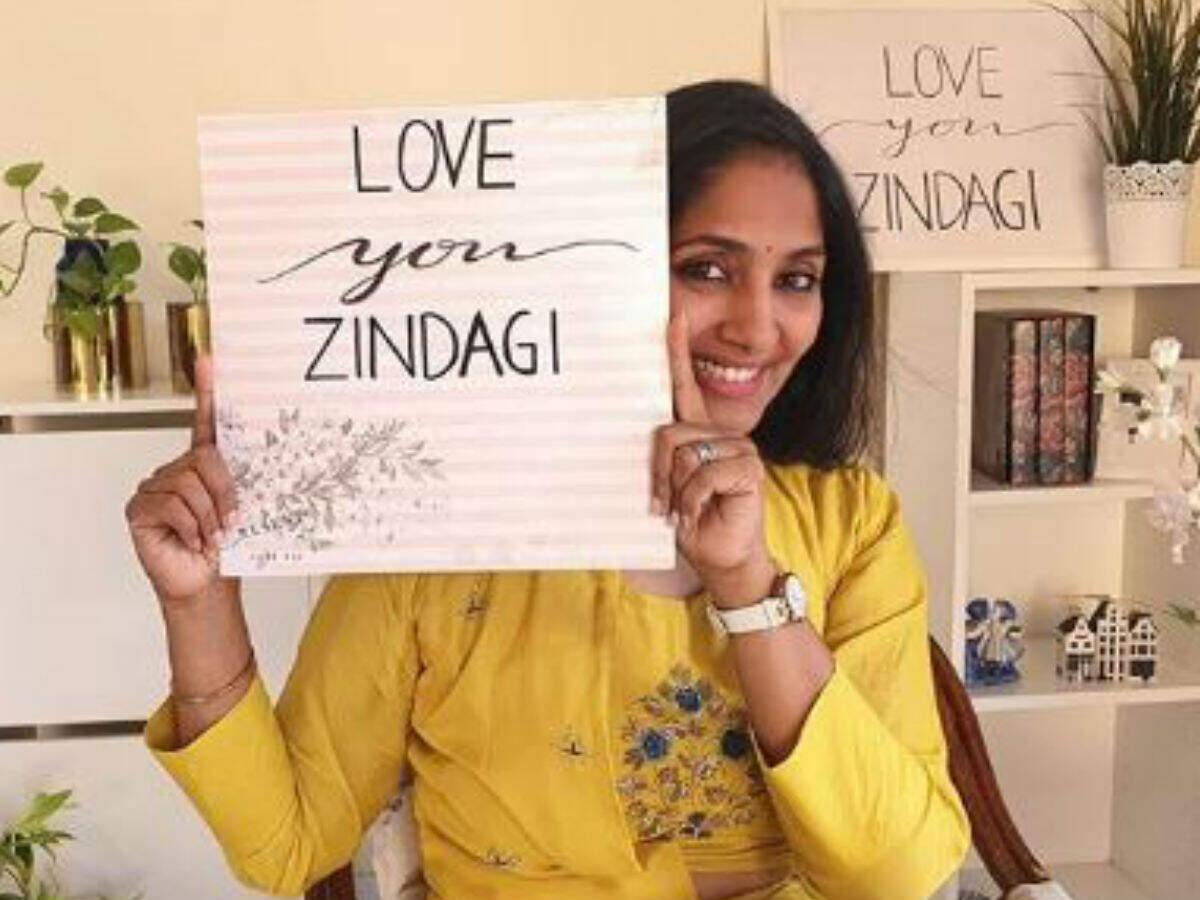 LOVE
you
ZINDAGI
LOVE
you
ZINDAGI